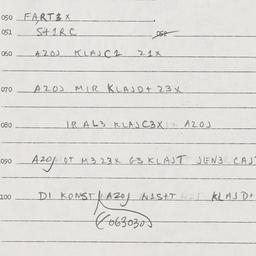 050 FART3X
051 S41RC 052
060 AZOJ KLAJC1 21X
070 AZOJ MIR KLAJD+ 23X
080 IR AL3 KLAJC3X AZOJ
090 AZOJ OT M3 23X G3 KLAJT JEN3 CAJ
100 DI KONST AZOJ KLAJD+
(063030)